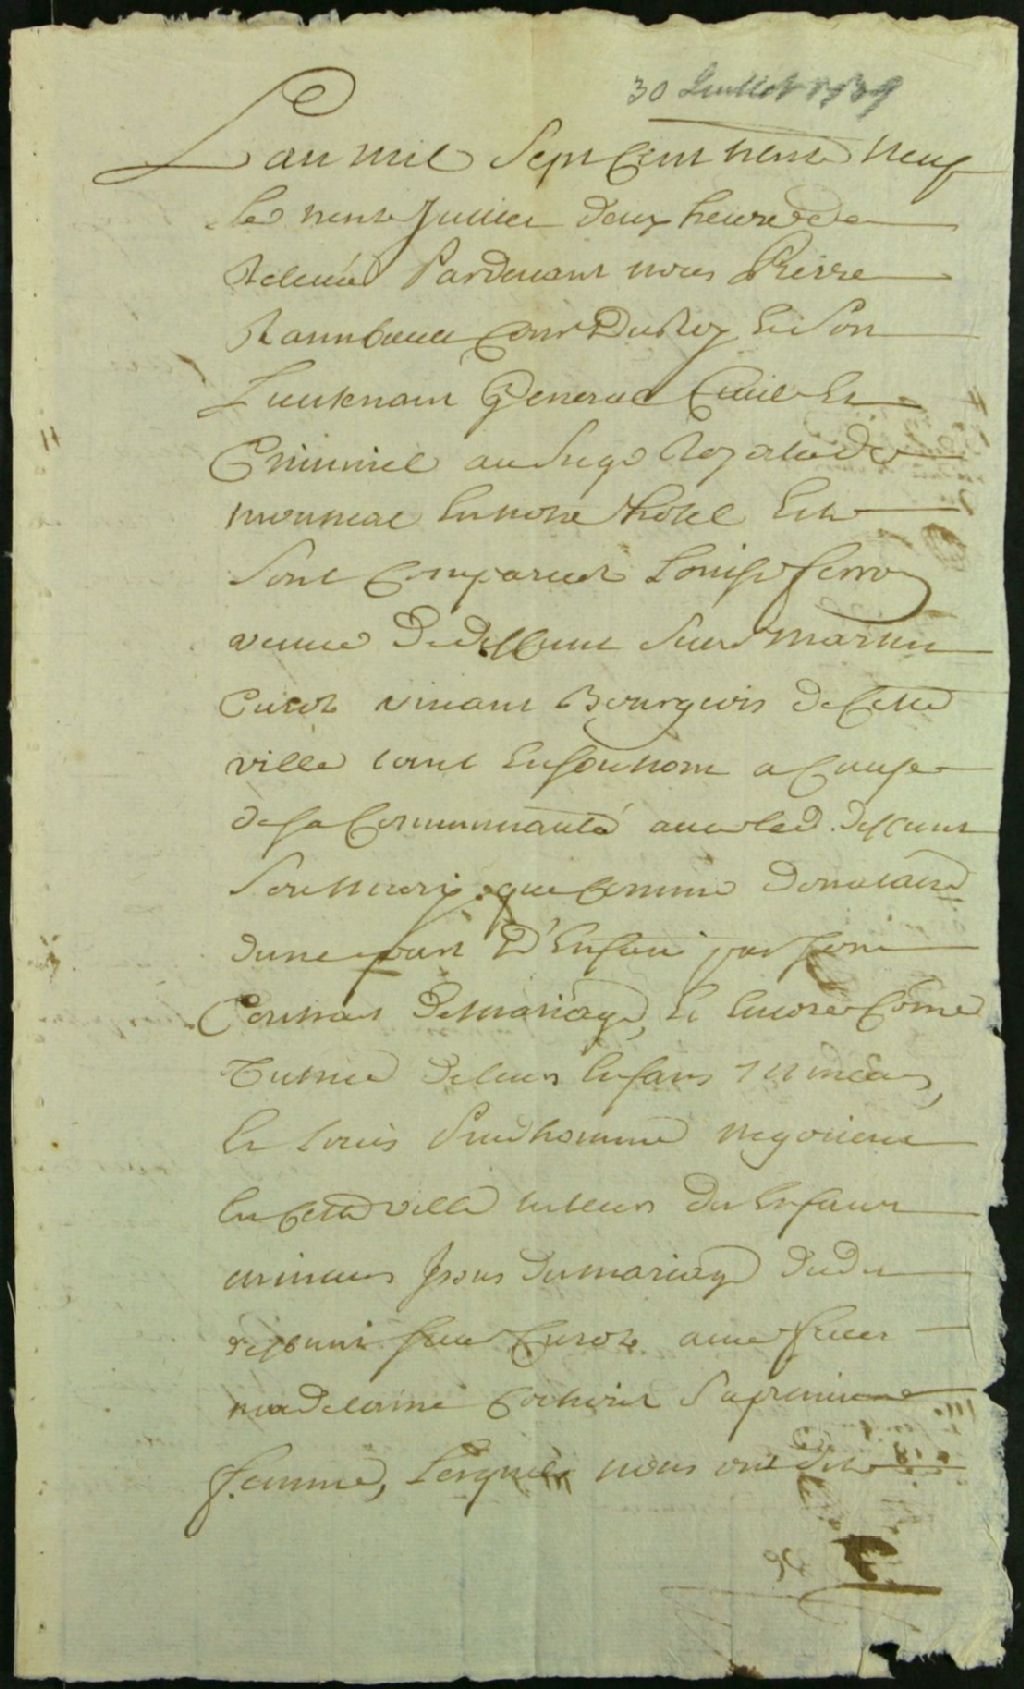 30 Juillet 1739
Lan mil Sept Cent trente neuf
le trente Juillet deux heures de
Relevée Pardevant nous Pierre
Raimbault Conser Du Roy et Son
Lieutenant General Civil et
Criminel au Siege Royal de
montreal En notre hôtel Est
Sont Comparues Louise
veuve De deffunt Sieur Martin
Curot vivant Bourgeois de Cette
ville tant En son nom a Cause
de sa Communauté avec led. deffunt
Son mary, que Comme donataire
dune part D'Enfant par son
Contrat De mariage, et Encore Côme
Tutrice de leurs Enfans mineurs,
Et Louis Prudhomme negociant
En Cette ville tuteur des Enfans
mineurs Issus du mariage dudit
deffunt sieur Curot avec feue
madelaine Cauchois Sa premiere
femme, Lesquels nous ont dit